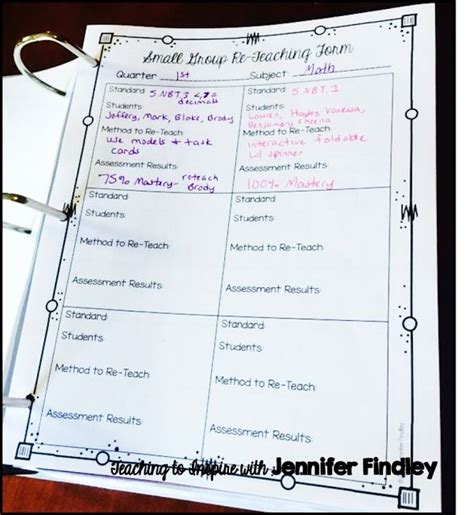 Small Group Re-Teaching Form
Quarter 1st Subject Math
Standard 5.NBT.3 <,>,=
decimals
Students:
Jeffery, Mark, Blake, Brody
Method to Re-Teach:
use models + task
cards
Assessment Results:
75% Mastery- reteach
Brody
Standard 5.NBT.1
Students:
Lauren, Hayley, Vanessa,
Method to Re-Teach:
interactive foldable
w/ spinner
Assessment Results:
100% Mastery
Standard:
Students:
Method to Re-Teach:
Assessment Results:
Standard:
Students:
Method to Re-Teach:
Assessment Results:
Standard:
Students:
Method to Re-Teach:
Assessment Results:
Standard:
Students:
Method to Re-Teach:
Assessment Results:
Teaching to Inspire with Jennifer Findley